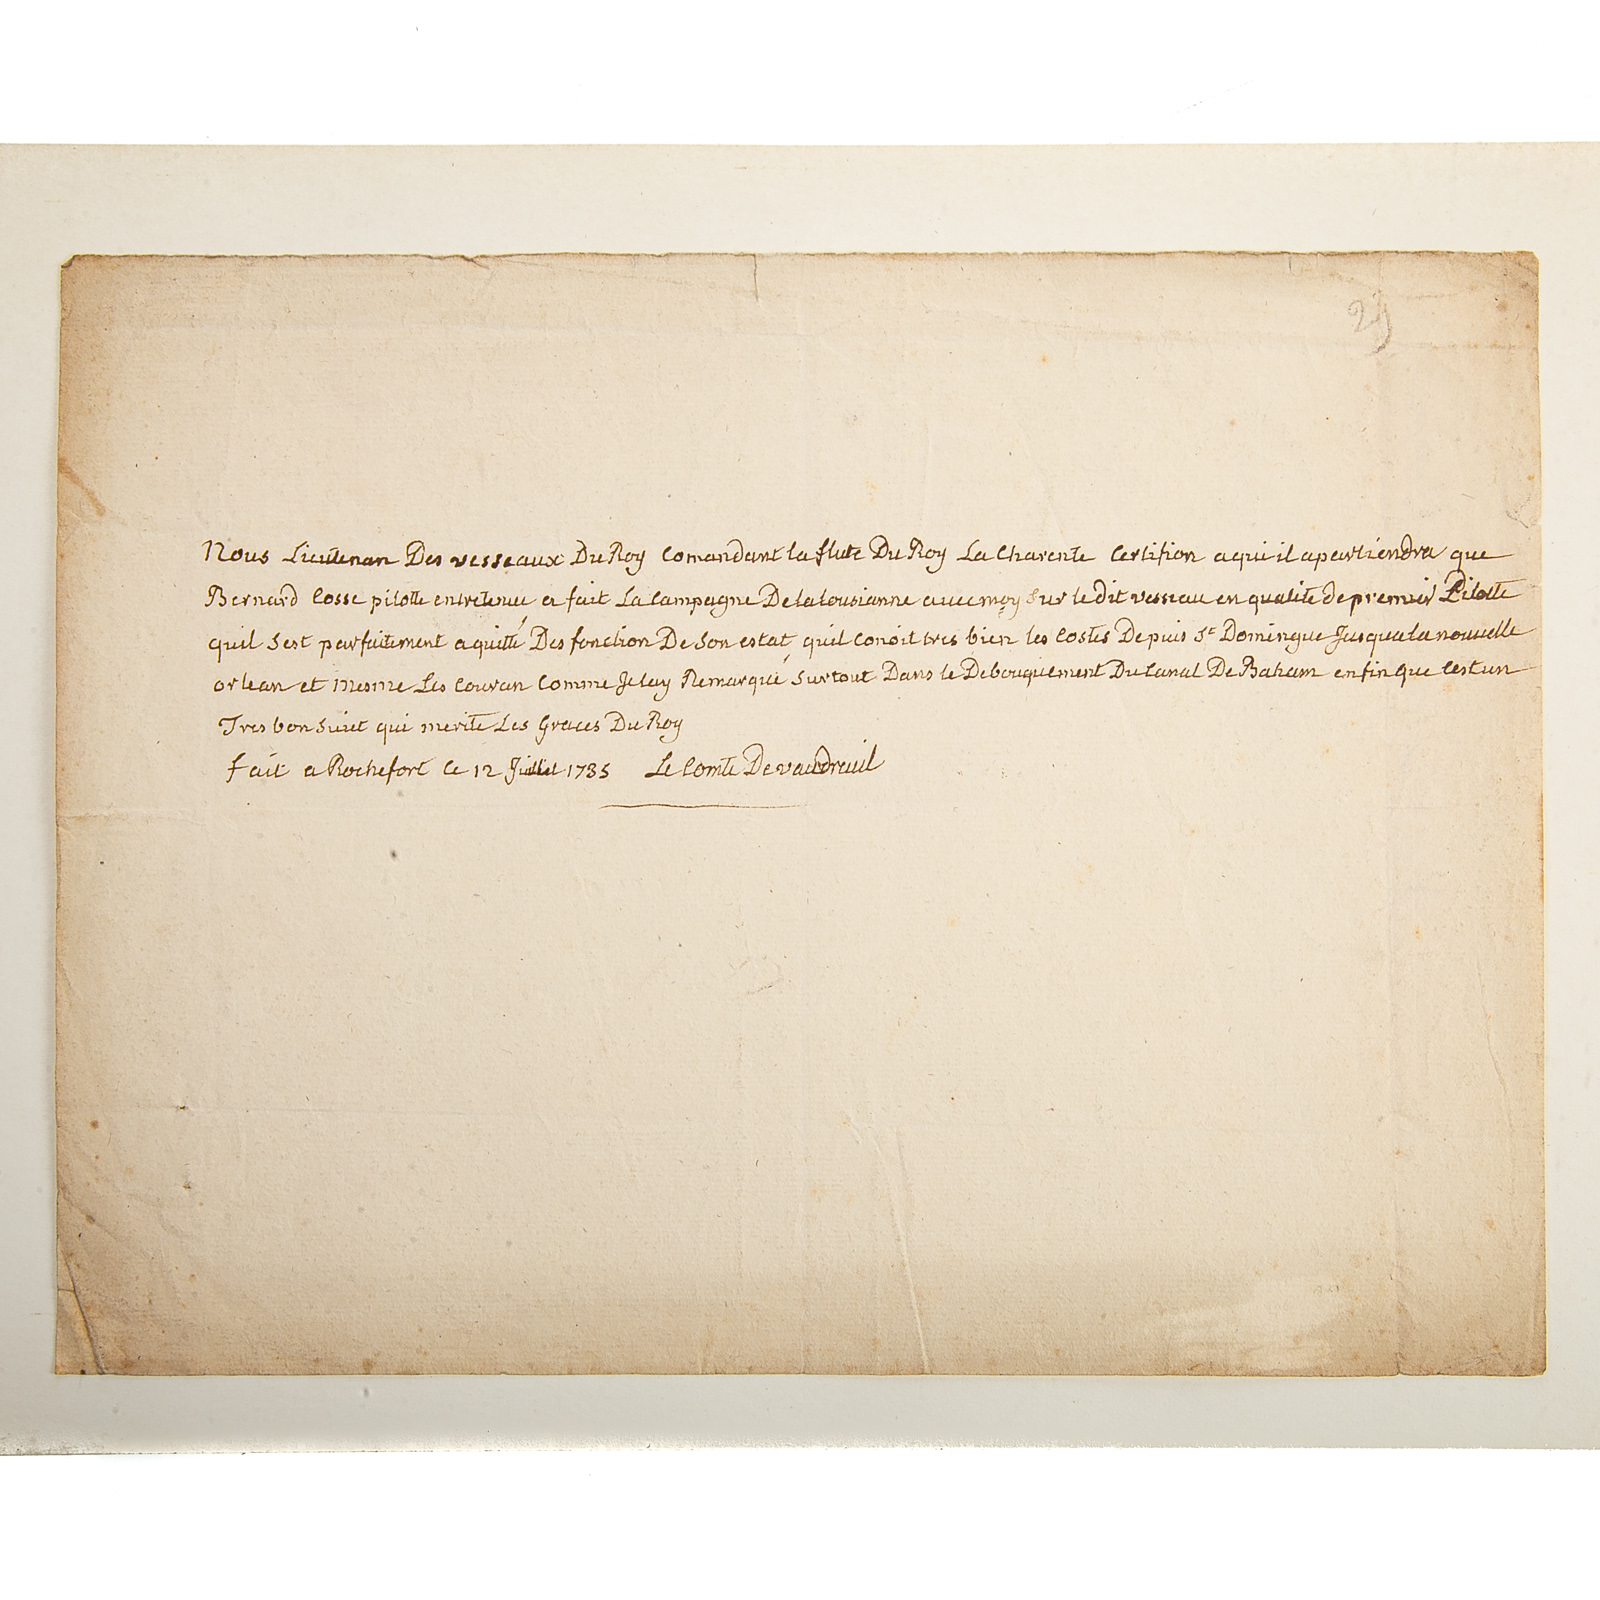 29
Nous Lieutenan Des vesseaux Du Roy Comandant la flute Du Roy La Charente Certifion a qui il apartiendra que
Bernard Cosse pilotte entretenue a fait La Campagne De la lousianne avec moy sur le dit vesseau en qualite de premier Pilotte
quil sest parfaitement aquitté Des fonction De Son estat quil conoit tres bien les Costes Depuis St Domingue Jusqua la nouvelle
orlean et mesme Les Couran Comme Je lay Remarqué Surtout Dans le Debouquement Du Canal De Baham enfin que Cest un
Tres bon Suiet qui merite Les Graces Du Roy
fait a Rochefort Ce 12 Juillet 1735 Le Comte De vaudreuil